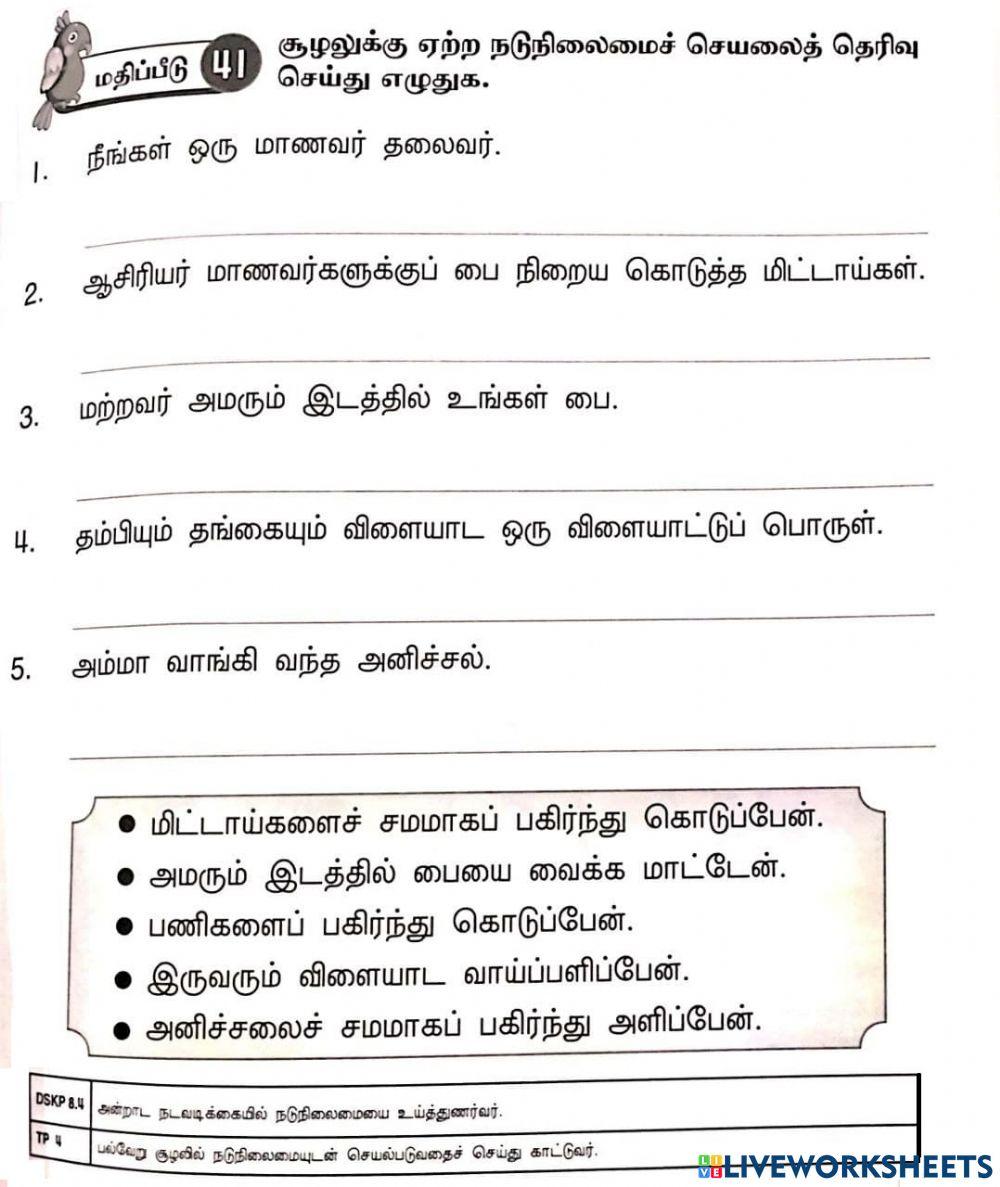 மதிப்பீடு 41 சூழலுக்கு ஏற்ற நடுநிலைமைச் செயலைத் தெரிவு
செய்து எழுதுக.
1. நீங்கள் ஒரு மாணவர் தலைவர்.
2. ஆசிரியர் மாணவர்களுக்குப் பை நிறைய கொடுத்த மிட்டாய்கள்.
3. மற்றவர் அமரும் இடத்தில் உங்கள் பை.
4. தம்பியும் தங்கையும் விளையாட ஒரு விளையாட்டுப் பொருள்.
5. அம்மா வாங்கி வந்த அனிச்சல்.
● மிட்டாய்களைச் சமமாகப் பகிர்ந்து கொடுப்பேன்.
● அமரும் இடத்தில் பையை வைக்க மாட்டேன்.
● பணிகளைப் பகிர்ந்து கொடுப்பேன்.
● இருவரும் விளையாட வாய்ப்பளிப்பேன்.
● அனிச்சலைச் சமமாகப் பகிர்ந்து அளிப்பேன்.
DSKP 8.4 அன்றாட நடவடிக்கையில் நடுநிலைமையை உய்த்துணர்வர்.
TP 4 பல்வேறு சூழலில் நடுநிலைமையுடன் செயல்படுவதைச் செய்து காட்டுவர்.
LIVE LIVEWORKSHEETS